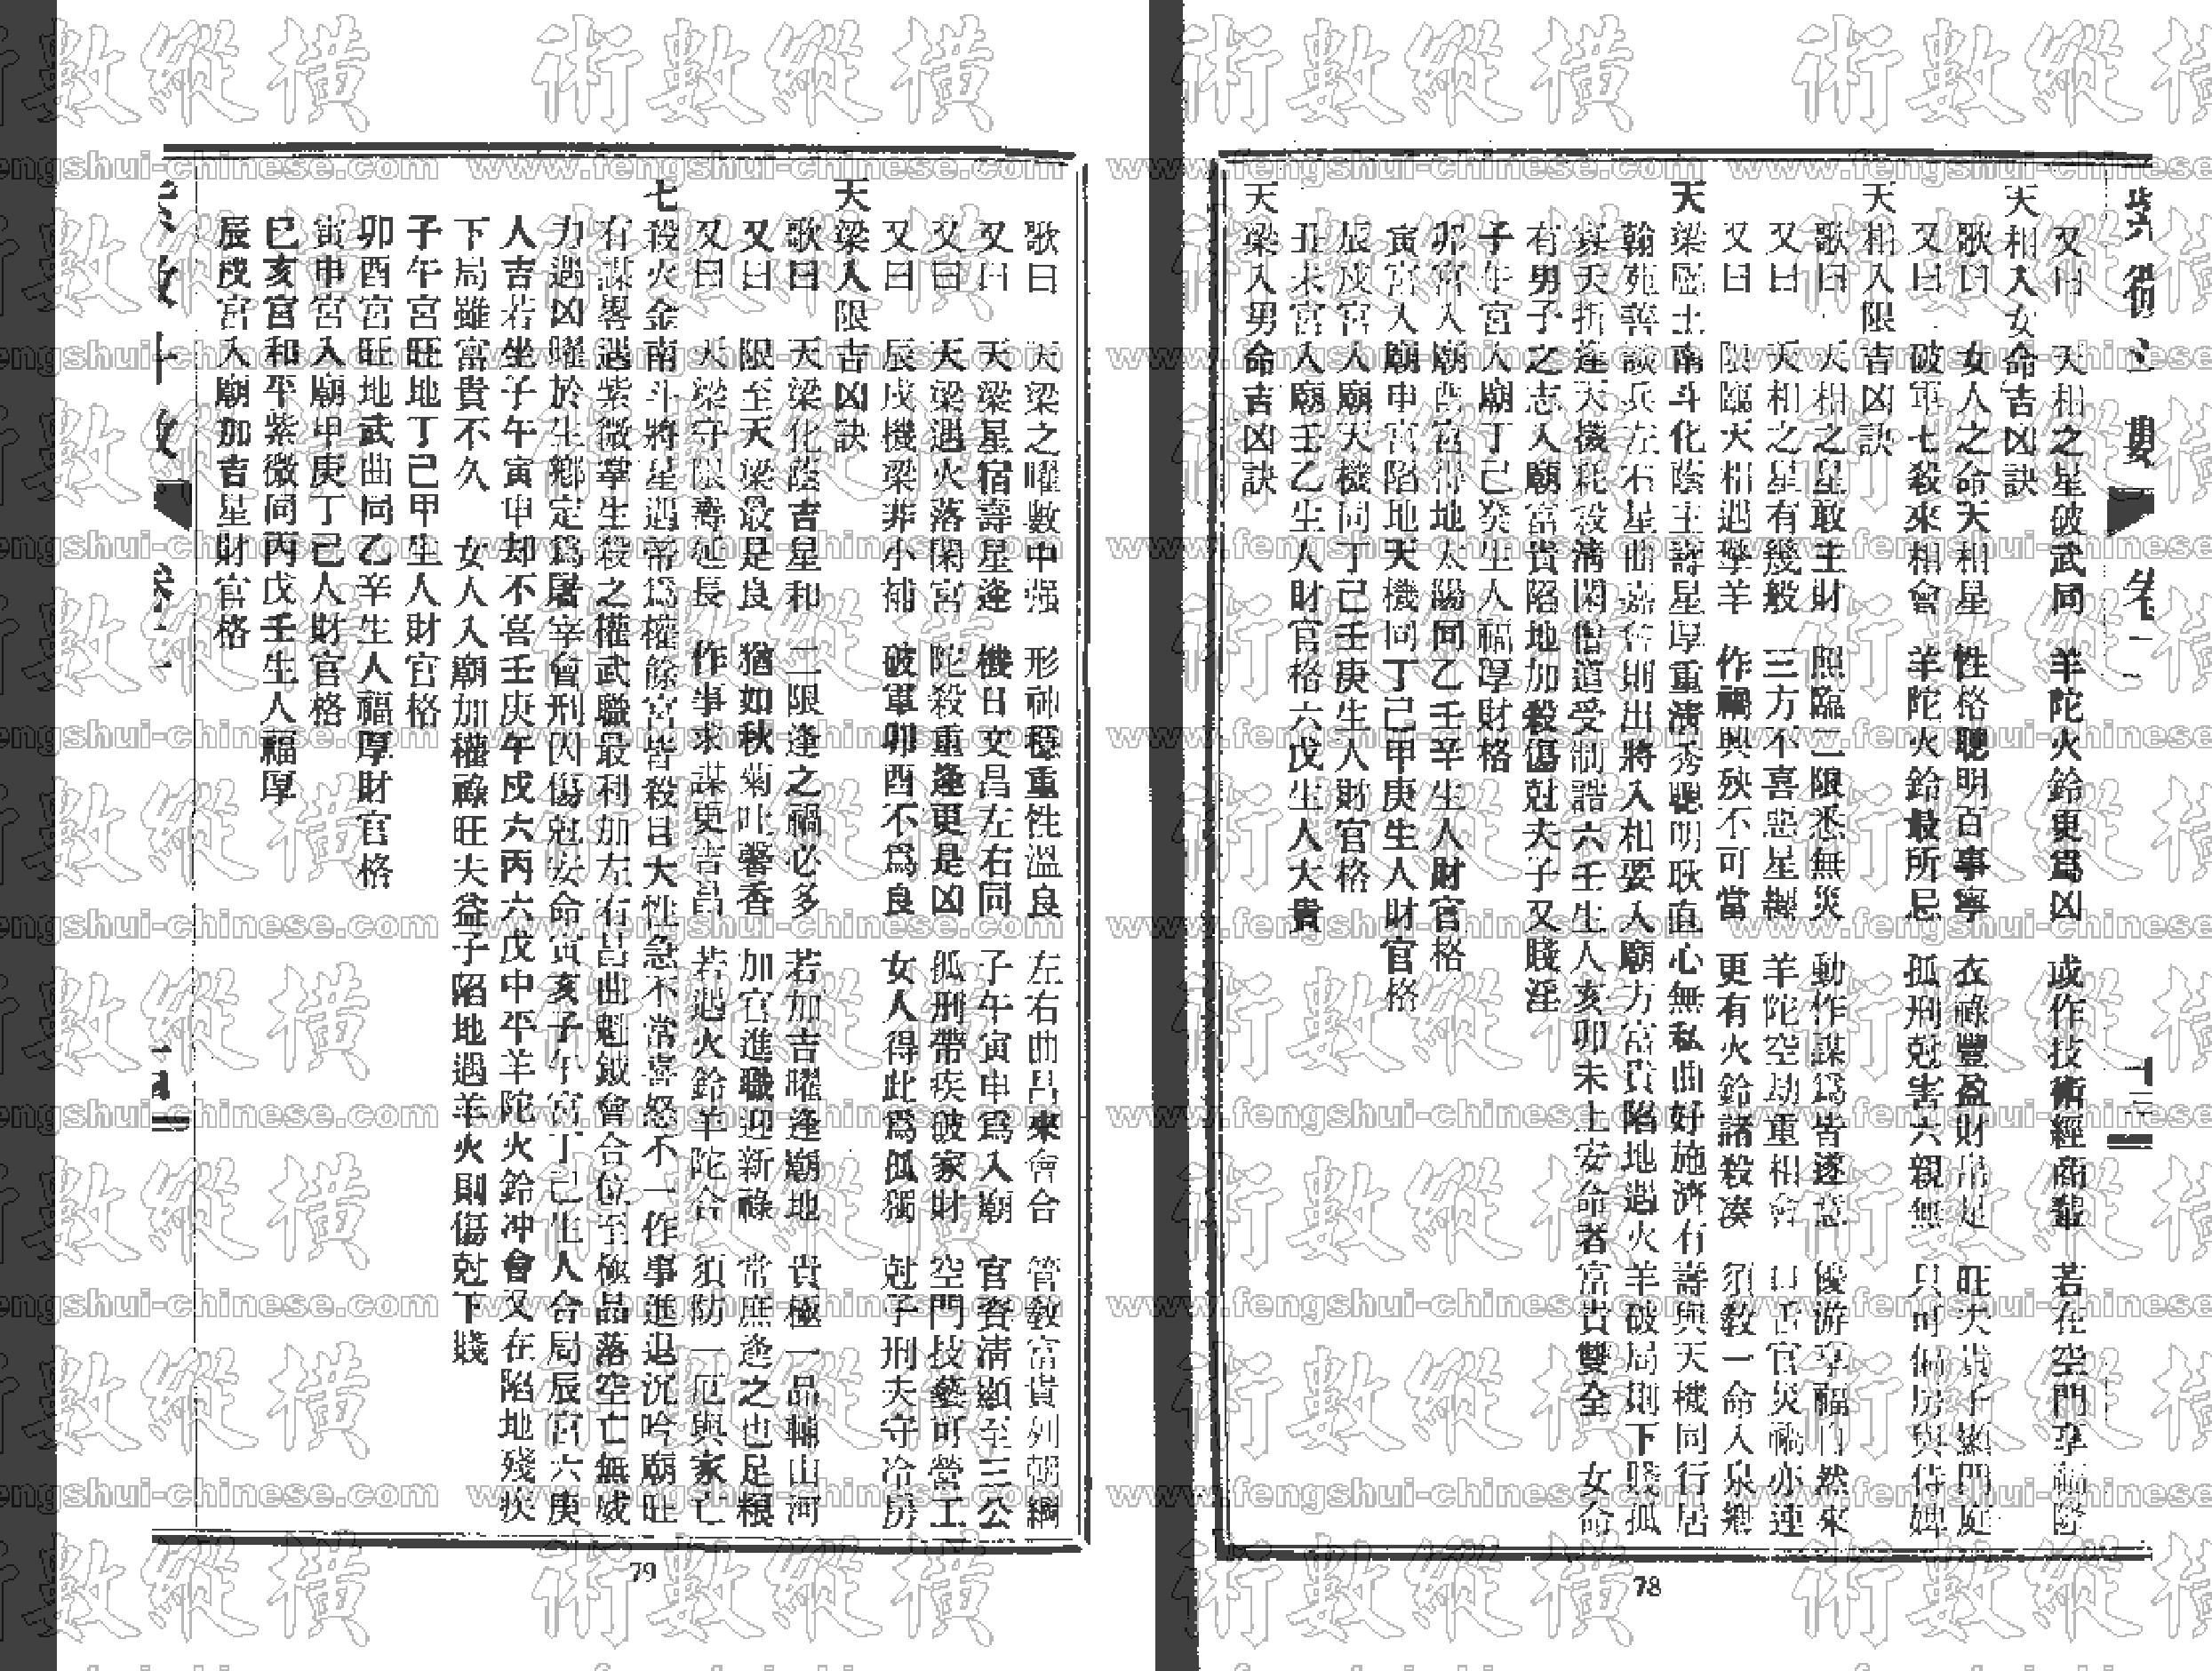 又曰　天相之星破武同　羊陀火鈴更爲凶　或作技術經商輩　若在空門享福隆
天相入女命吉凶訣
歌曰　女人之命天相星　性格聰明百事寧　衣祿豐盈財帛足　旺夫貴子顯門庭
又曰　破軍七殺來相會　羊陀火鈴最所忌　孤刑尅害六親無　只可偏房與侍婢
天相入限吉凶訣
歌曰　天相之星敢主財　照臨二限悉無災　動作謀爲皆遂意　優游享福自然來
又曰　天相之星有幾般　三方不喜惡星纏　羊陀空劫重相會　口舌官災禍亦連
又曰　限臨天相遇擎羊　作禍興殃不可當　更有火鈴諸殺湊　須教一命入泉鄉
天梁屬土南斗化蔭主壽星厚重清秀聰明耿直心無私曲好施濟有壽與天機同行居
翰苑善談兵左右星曲嘉會則出將入相要入廟方富貴陷地遇火羊破局則下賤孤
寡夭折逢天機耗殺清閑僧道受制誥六壬生人亥卯未上安命者富貴雙全　女命
有男子之志入廟富貴陷地加殺傷尅夫子又賤淫
子午宮入廟丁己癸生人福厚財格
卯宮入廟酉宮得地太陽同乙壬辛生人財官格
寅宮入廟申宮陷地天機同丁己甲庚生人財官格
辰戌宮入廟天機同丁己壬庚生人財官格
丑未宮入廟壬乙生人財官格六戊生人大貴
天梁入男命吉凶訣
78
歌曰　天梁之曜數中强　形神穩重性溫良　左右曲昌來會合　管教富貴列朝綱
又曰　天梁星宿壽星逢　機日文昌左右同　子午寅申爲入廟　官資清顯至三公
又曰　天梁遇火落閑宮　陀殺重逢更是凶　孤刑帶疾破家財　空門技藝可營工
又曰　辰戌機梁非小補　破軍卯酉不爲良　女人得此爲孤獨　尅子刑夫守冷房
天梁入限吉凶訣
歌曰　天梁化蔭吉星和　二限逢之福必多　若加吉曜逢廟地　貴極一品輔山河
又曰　限至天梁最是良　猶如秋菊吐馨香　加官進職迎新祿　常庶逢之也足糧
又曰　天梁守限壽延長　作事求謀更吉昌　若遇火鈴羊陀合　須防一厄與家亡
七殺火金南斗將星遇帝爲權餘宮皆殺目大性急不常喜怒不一作事進退沉吟廟旺
有謀畧遇紫微掌生殺之權武職最利加左右昌曲魁鉞會合位至極品落空亡無威
力遇凶曜於生鄉定爲屠宰會刑囚傷尅安命寅亥子午宮丁己生人合局辰宮六庚
人吉若坐子午寅申却不喜壬庚午戌六丙六戊中平羊陀火鈴冲會又在陷地殘疾
下局雖富貴不久　女人入廟加權祿旺夫益子陷地遇羊火則傷尅下賤
子午宮旺地丁己甲生人財官格
卯酉宮旺地武曲同乙辛生人福厚財官格
寅申宮入廟甲庚丁己人財官格
巳亥宮和平紫微同丙戊壬生人福厚
辰戌宮入廟加吉星財官格
79